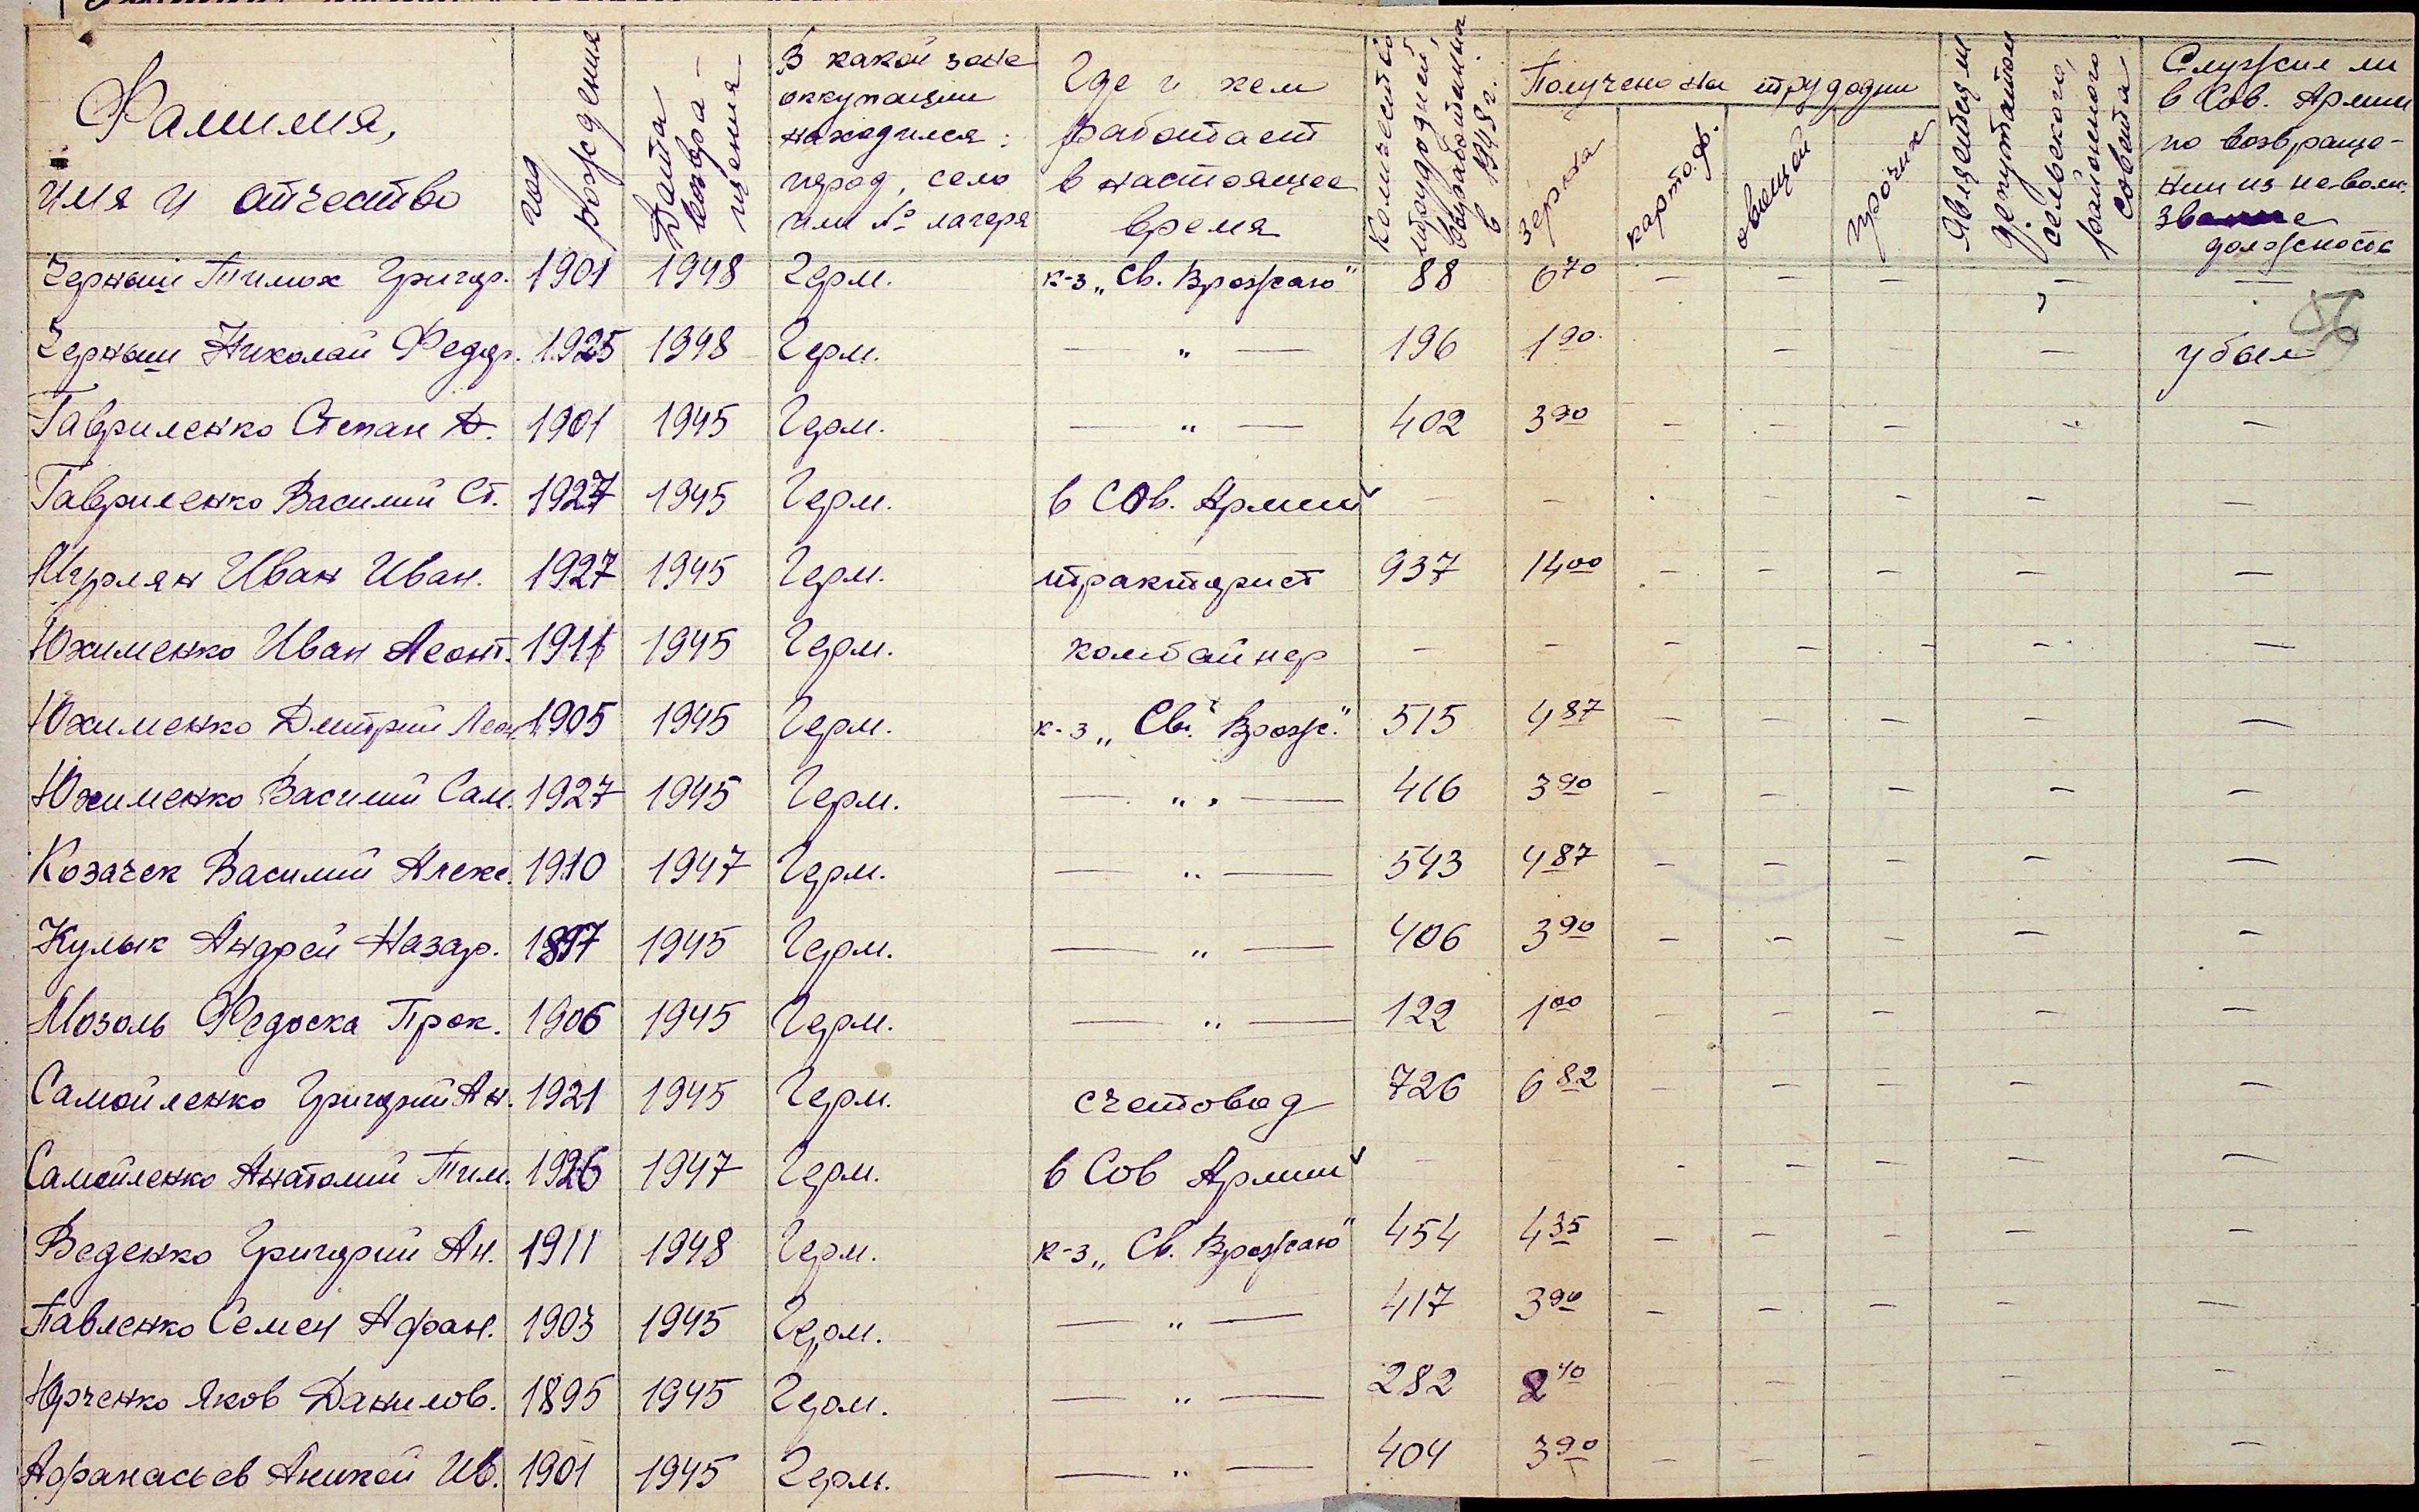 Фамилия, имя и отчество | год рождения | Дата возвра-щения | В какой зоне оккупации находился: город, село или № лагеря | Где и кем работает в настоящее время | Количество трудодней, выработанных в 1948 г. | Получено на трудодни: зерна | картоф. | овощей | прочих | Является ли депутатом сельского, районного совета | Служил ли в Сов. Армии по возвраще-нии из неволи. звание должность
Черныш Тимох Григор. 1901 1948 Герм. к-з „Св. Врожаю" 88 0 70 — — — —
56
Черныш Николай Федор. 1925 1948 Герм. — „ — 196 1 90 — — убыл
Гавриленко Степан Д. 1901 1945 Герм. — „ — 402 3 90 — — — — —
Гавриленко Василий Ст. 1927 1945 Герм. в Сов. Армии — — — — — —
Иван Иван. 1927 1945 Герм. тракторист 937 14 00 — — — — —
Юхименко Иван Леонт. 1911 1945 Герм. комбайнер — — — — — — —
Юхименко Дмитрий Леон. 1905 1945 Герм. к-з „Св. Врож." 515 4 87 — — — — —
Юхименко Василий Сам. 1927 1945 Герм. — „ — 416 3 90 — — — — —
Козачек Василий Алекс. 1910 1947 Герм. — „ — 543 4 87 — — — — —
Кулык Андрей Назар. 1897 1945 Герм. — „ — 406 3 90 — — — — —
Мозоль Федоска Прок. 1906 1945 Герм. — „ — 122 1 00 — — — — —
Самойленко Григорий Ан. 1921 1945 Герм. счетовод 726 6 82 — — — — —
Самойленко Анатолий Тим. 1926 1947 Герм. в Сов Армии — — — — — — —
Веденко Григорий Ан. 1911 1948 Герм. к-з „Св. Врожаю" 454 4 35 — — — — —
Павленко Семен Афан. 1903 1945 Герм. — „ — 417 3 90 — — — — —
Юрченко Яков Данилов. 1895 1945 Герм. — „ — 282 2 40 — — — —
Афанасьев Аникей Ив. 1901 1945 Герм. — „ — 404 3 90 — — — — —